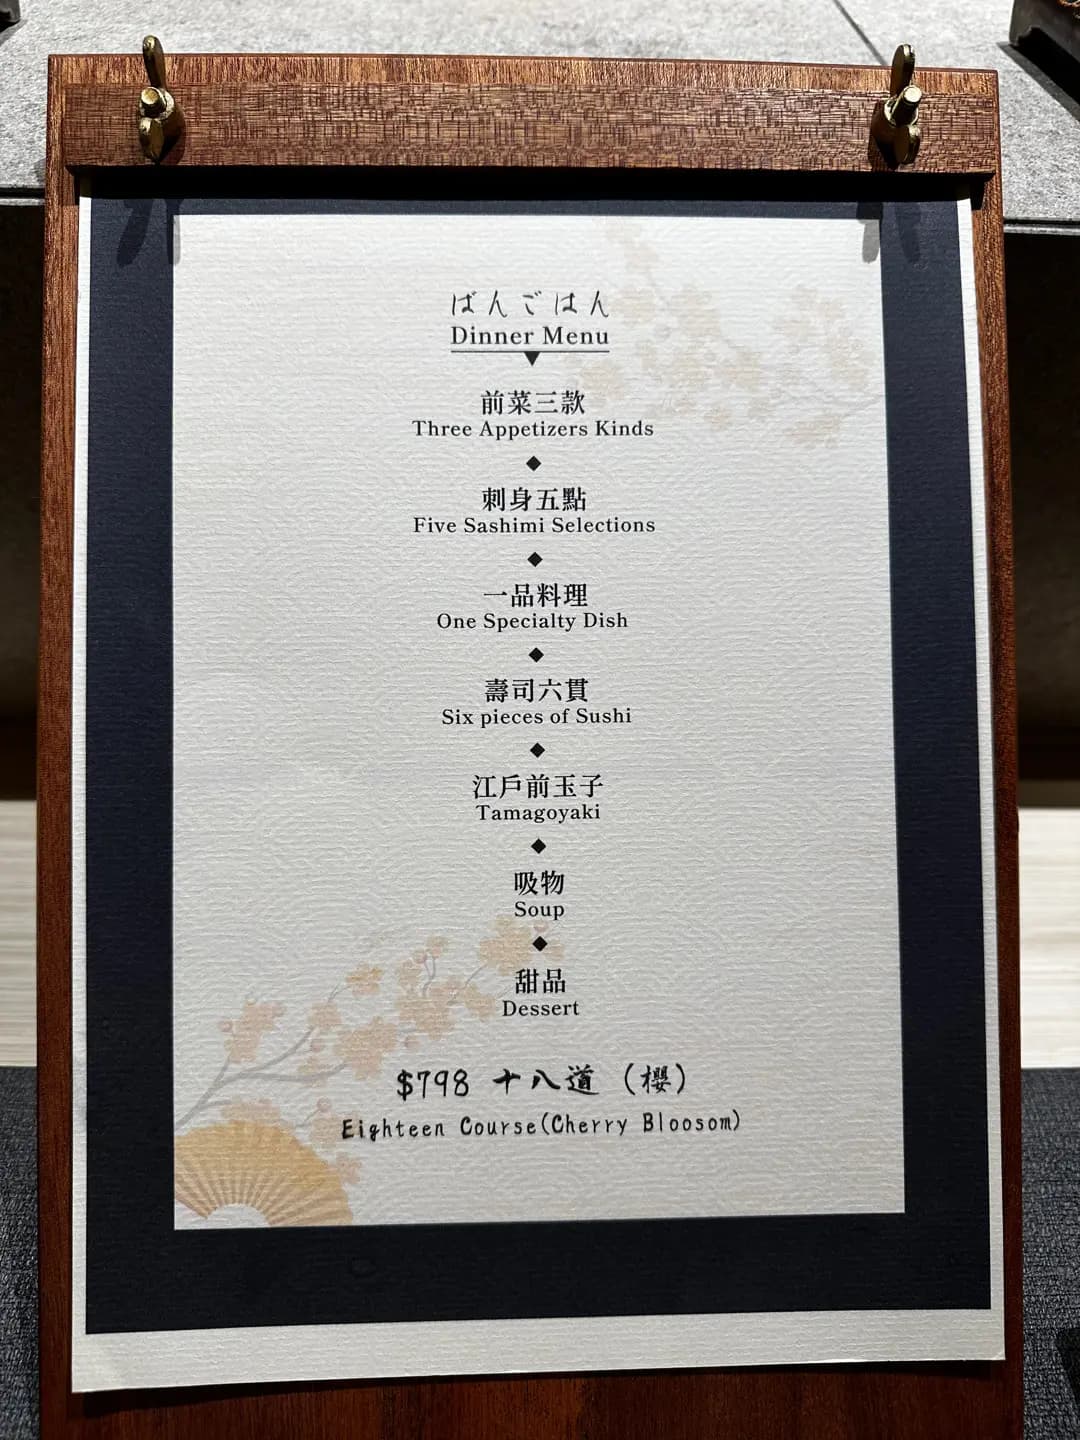 ばんごはん
Dinner Menu
前菜三款
Three Appetizers Kinds
刺身五點
Five Sashimi Selections
一品料理
One Specialty Dish
壽司六貫
Six pieces of Sushi
江戶前玉子
Tamagoyaki
吸物
Soup
甜品
Dessert
$798 十八道（櫻）
Eighteen Course(Cherry Bloosom)